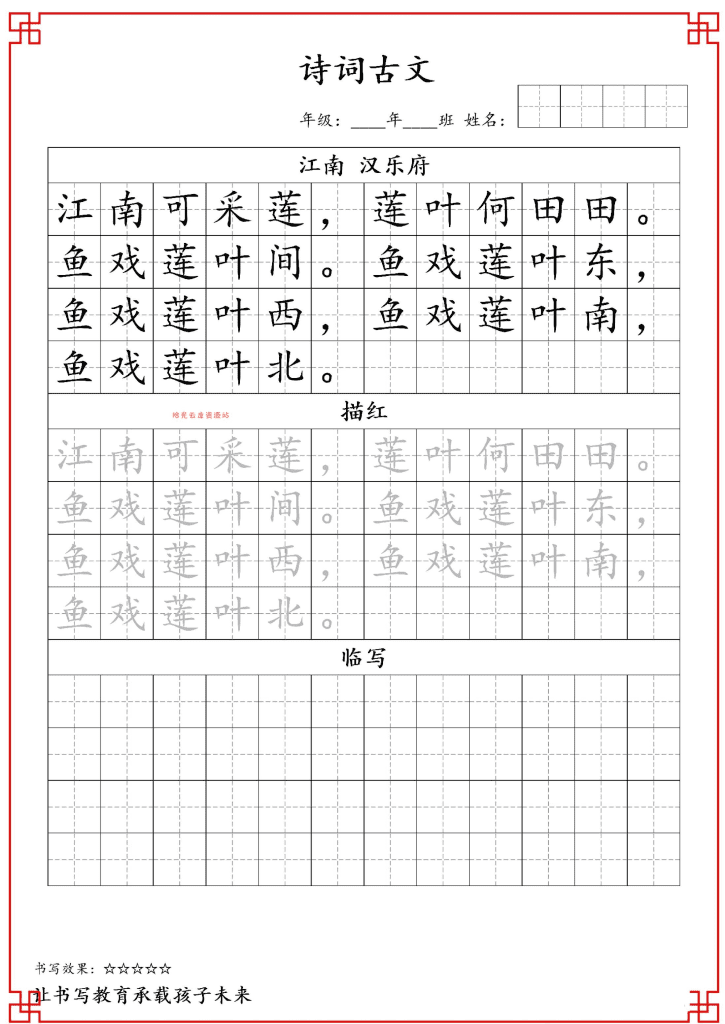 诗词古文
年级：____年____班 姓名：
江南 汉乐府
江南可采莲，莲叶何田田。
鱼戏莲叶间。鱼戏莲叶东，
鱼戏莲叶西，鱼戏莲叶南，
鱼戏莲叶北。
描红
江南可采莲，莲叶何田田。
鱼戏莲叶间。鱼戏莲叶东，
鱼戏莲叶西，鱼戏莲叶南，
鱼戏莲叶北。
临写
书写效果：☆☆☆☆☆
让书写教育承载孩子未来